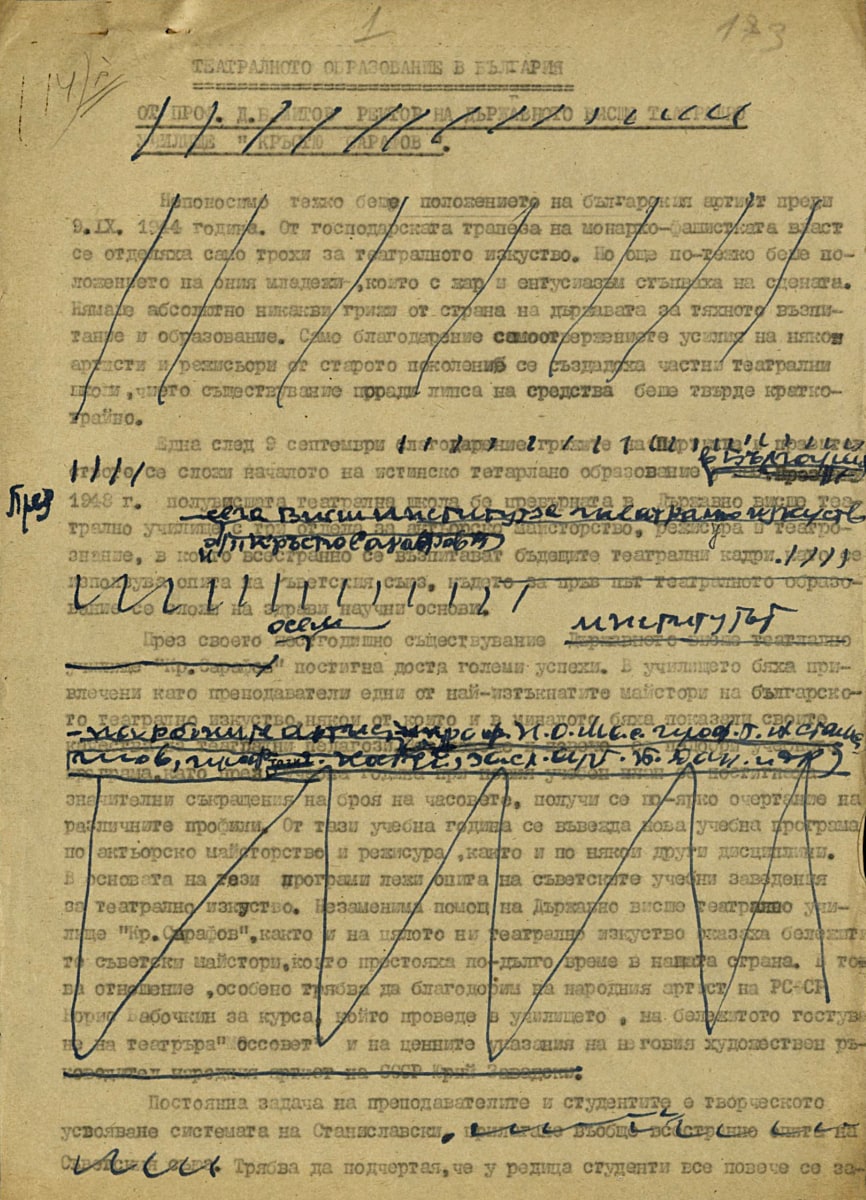 1
173
ТЕАТРАЛНОТО ОБРАЗОВАНИЕ В БЪЛГАРИЯ
ОТ ПРОФ. Д.Б.МИТОВ РЕКТОР НА ДЪРЖАВНОТО ВИСШЕ ТЕАТРАЛНО
УЧИЛИЩЕ " КРЪСТЮ САРАФОВ ".
Непоносимо тежко беше положението на българския артист преди
9.IX. 1944 година. От господарската трапеза на монархо-фашистката власт
се отделяха само трохи за театралното изкуство. Но още по-тежко беше по-
ложението на ония младежи ,които с жар и ентусиазъм стъпваха на сцената.
Нямаше абсолютно никакви грижи от страна на държавата за тяхното възпи-
тание и образование. Само благодарение самоотвержените усилия на някои
артисти и режисьори от старото поколение се създадоха частни театрални
школи ,чието съществуване поради липса на средства беше твърде кратко-
трайно.
Една след 9 септември благодарение грижите на Партията и
се сложи началото на истинско тетарлано образование
в България
През
1948 г. полувисшата театрална школа бе превърната в Държавно висше теа-
сега Висш институт за театрално изкуство
трално училище с три отдела за актьорско майсторство, режисура и театро-
"Кръстю Сарафов"
знание, в което всестранно се възпитават бъдещите театрални кадри.
използува опита на Съветския съюз, където за пръв път театралното образо-
вание се сложи на здрави научни основи.
осем
институтът
През своето годишно съществуване Държавното висше театрално
училище "Кр.Сарафов" постигна доста големи успехи. В училището бяха при-
влечени като преподаватели едни от най-изтъкнатите майстори на българско-
то театрално изкуство,някои от които и в миналото бяха показали своите
- народните артисти проф. Н. О. Мас. проф. Г. Стама
тов,
значителни съкращения на броя на часовете, получи се по-ярко очертание на
различните профили. От тази учебна година се въвежда нова учебна програма
по актьорско майсторство и режисура ,както и по някои други дисциплини.
В основата на тези програми лежи опита на съветските учебни заведения
за театрално изкуство. Незаменима помощ на Държавно висше театрално учи-
лище "Кр.Сарафов",както и на цялото ни театрално изкуство оказаха бележити-
те съветски майстори,които престояха по-дълго време в нашата страна. В то-
ва отношение ,особено трябва да благодарим на народния артист на РСФСР
Борис Бабочкин за курса, който проведе в училището , на бележитото гостува-
не на театръра" Моссовет" и на ценните указания на неговия художествен ръ-
ководител народния артист на СССР Юрий Завадски.
Постоянна задача на преподавателите и студентите е творческото
усвояване системата на Станиславски, въобще всестранно опита на
Съветския съюз. Трябва да подчертая,че у редица студенти все повече се за-